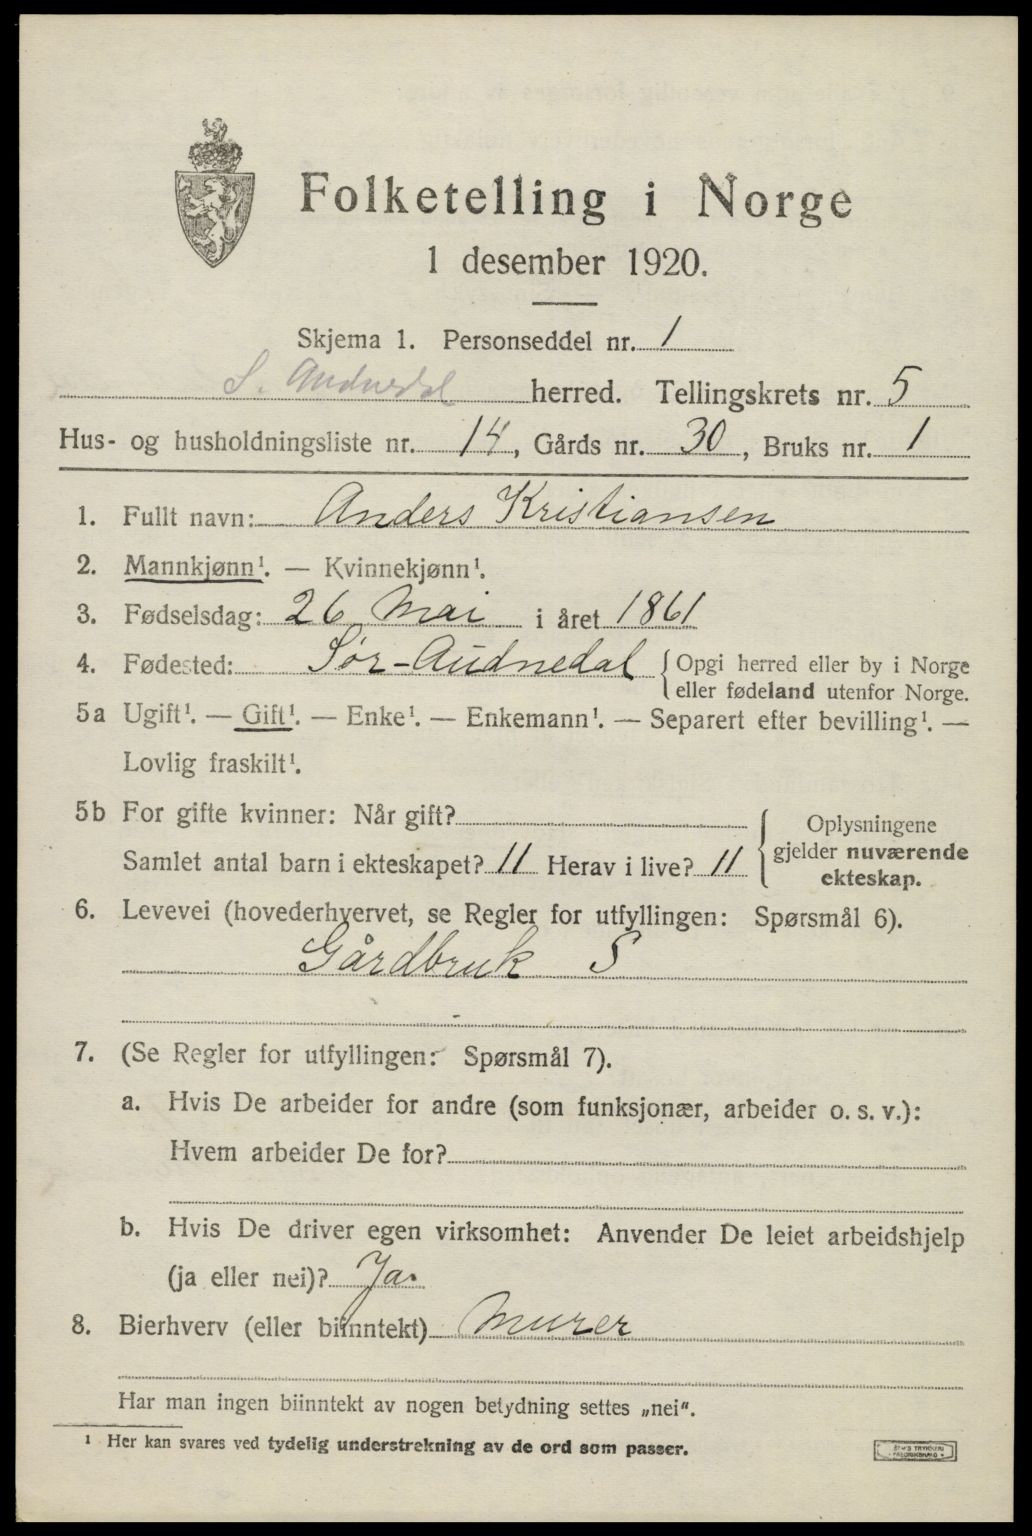 Folketelling i Norge
1 desember 1920.
Skjema 1. Personseddel nr. 1
S. Audnedal herred. Tellingskrets nr. 5
Hus- og husholdningsliste nr. 14, Gårds nr. 30, Bruks nr. 1
1. Fullt navn: Anders Kristiansen
2. Mannkjønn¹. — Kvinnekjønn¹.
3. Fødselsdag: 26 Mai i året 1861
4. Fødested: Sør-Audnedal { Opgi herred eller by i Norge
eller fødeland utenfor Norge.
5a Ugift¹. — Gift¹. — Enke¹. — Enkemann¹. — Separert efter bevilling¹. —
Lovlig fraskilt¹.
5b For gifte kvinner: Når gift?
Samlet antal barn i ekteskapet? 11 Herav i live? 11
{ Oplysningene
gjelder nuværende
ekteskap.
6. Levevei (hovederhvervet, se Regler for utfyllingen: Spørsmål 6).
Gårdbruk S
7. (Se Regler for utfyllingen: Spørsmål 7).
a. Hvis De arbeider for andre (som funksjonær, arbeider o. s. v.):
Hvem arbeider De for?
b. Hvis De driver egen virksomhet: Anvender De leiet arbeidshjelp
(ja eller nei)? Ja.
8. Bierhverv (eller biinntekt) Murer
Har man ingen biinntekt av nogen betydning settes „nei“.
¹ Her kan svares ved tydelig understrekning av de ord som passer.